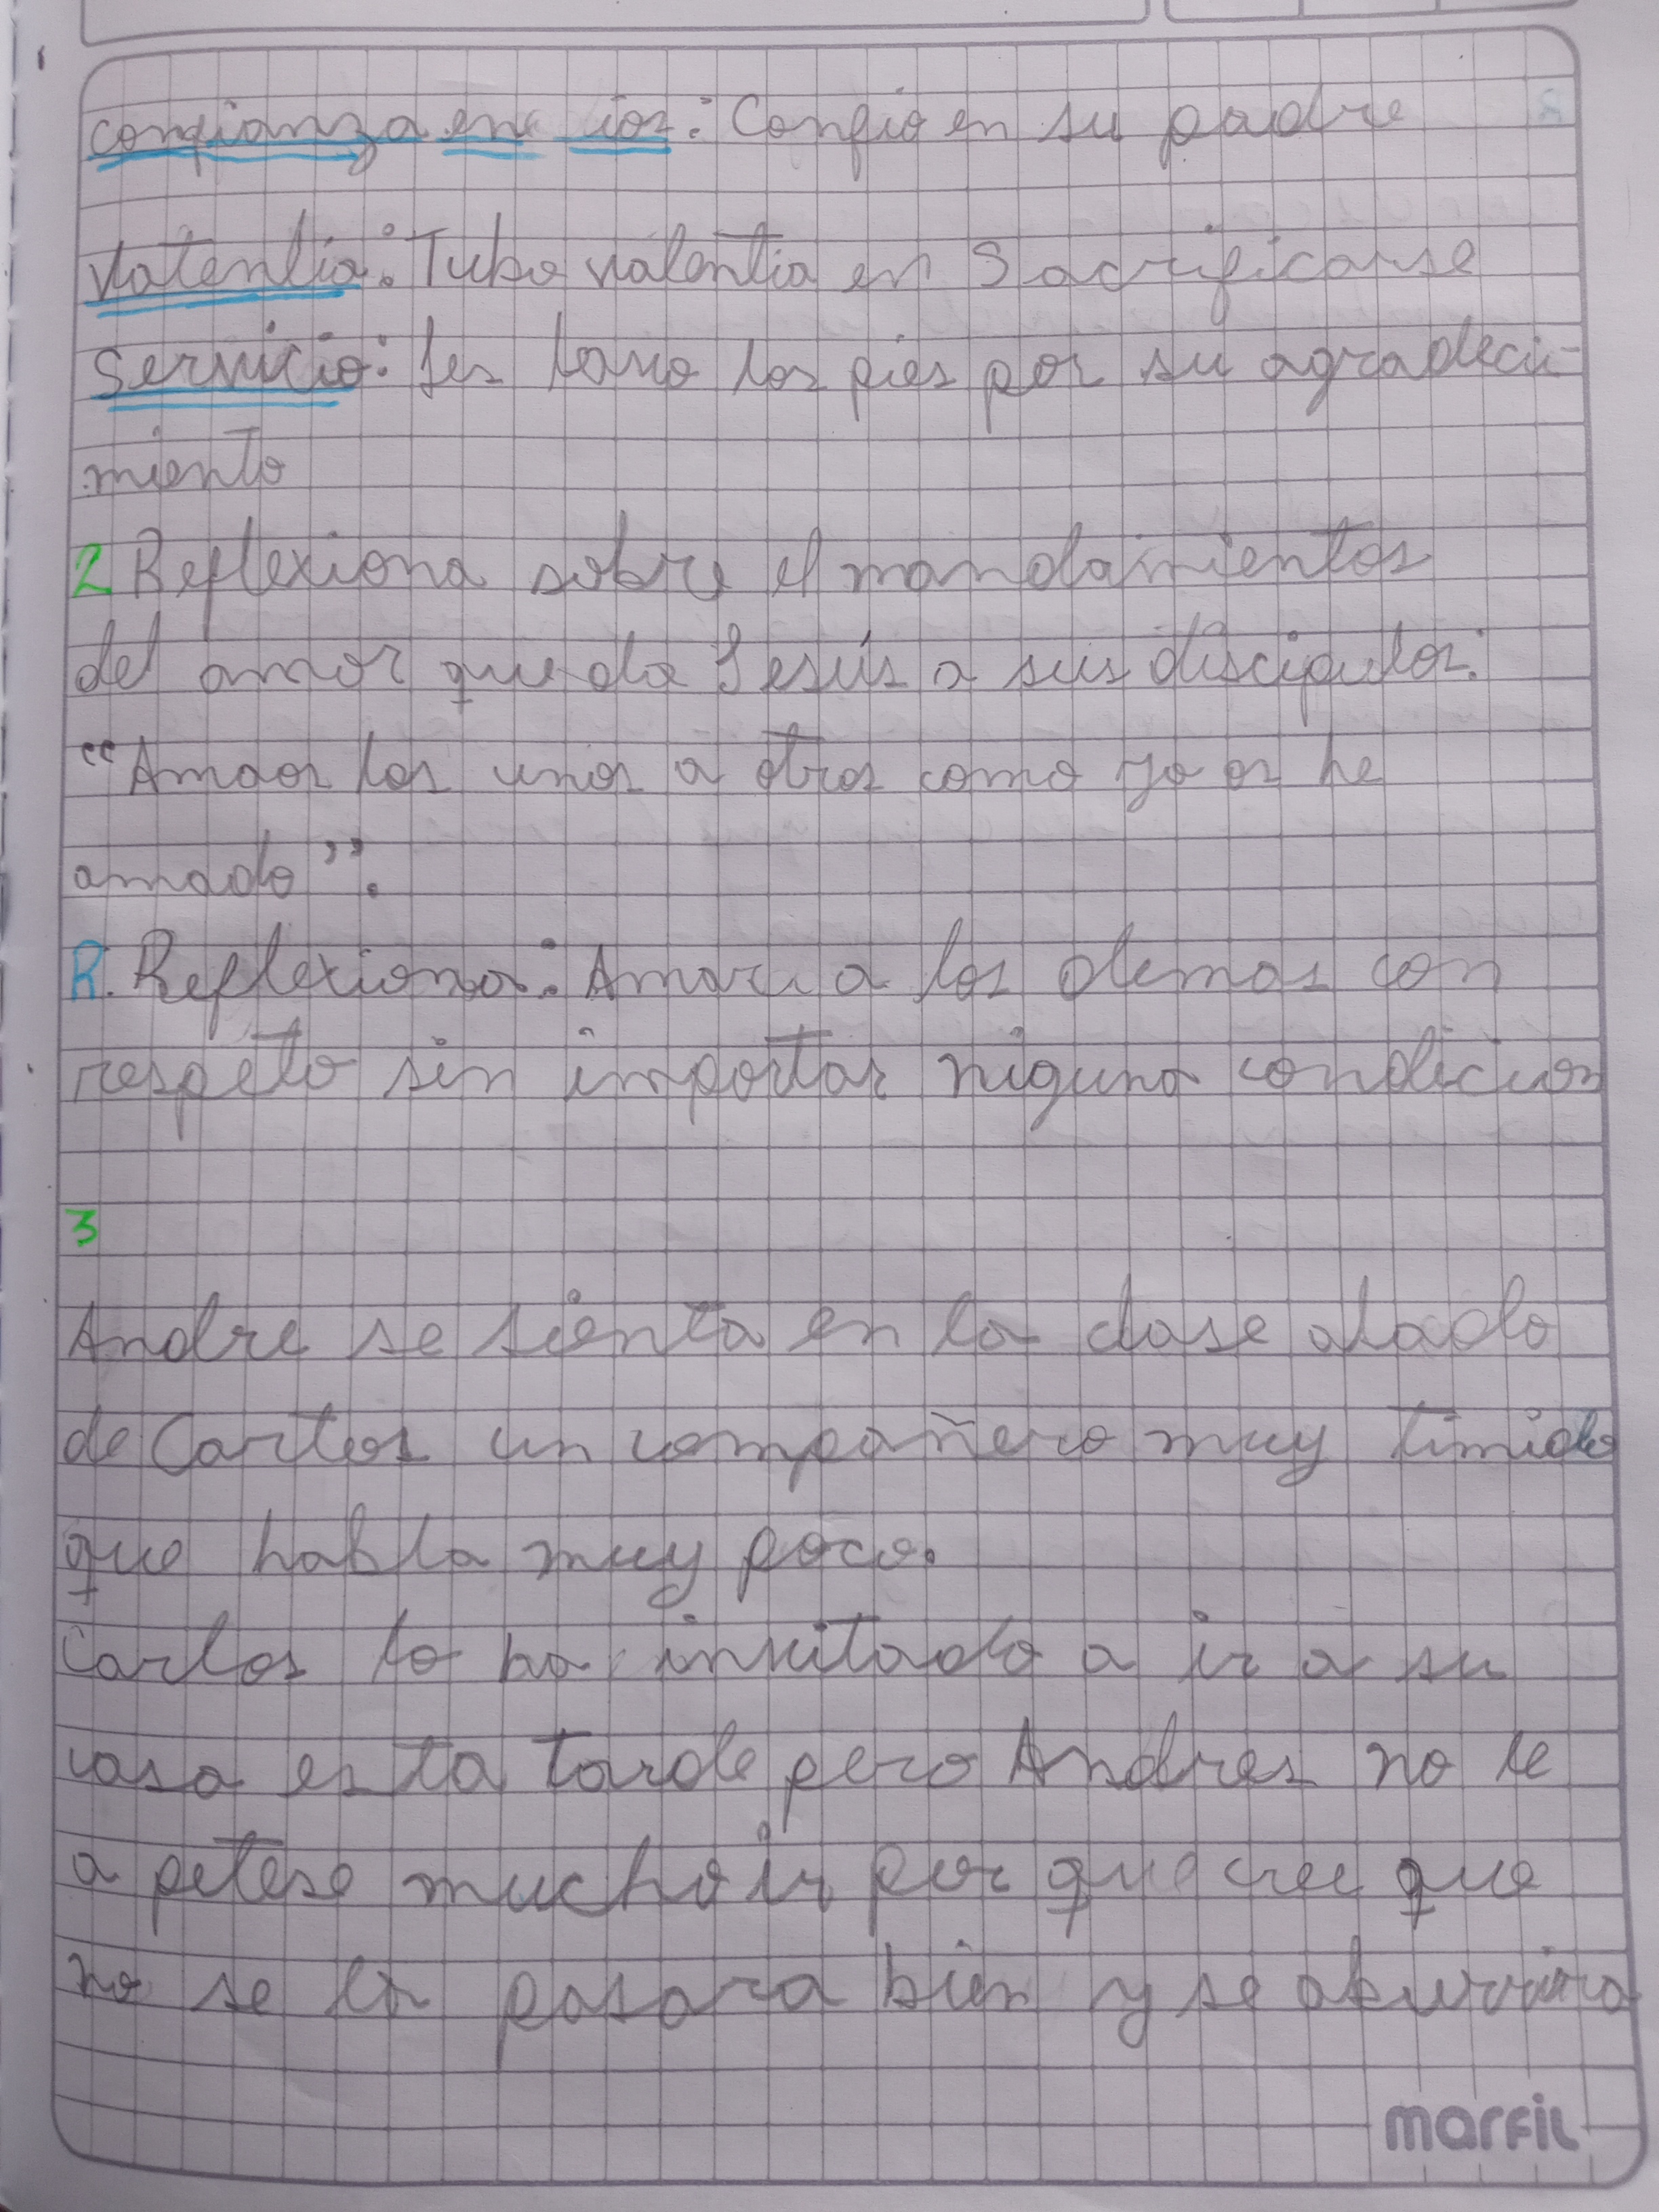 confianza en ios: Confio en su padre
Valentia: Tubo valentia en Sacrificarse
Servicio: les lavo los pies por su agradeci-
miento
2 Reflexiona sobre el mandamientos
del amor que da Jesús a sus discipulos:
"Amaos los unos a otros como yo os he
amado".
R. Reflexiona: Amar a los demas con
respeto sin importar niguna condicion
3
Andre se sienta en la clase alado
de Carlos un compañero muy timido
que habla muy poco.
Carlos lo ha invitado a ir a su
casa esta tarde pero Andres no le
a petese mucho ir por que cree que
no se la pasara bien y se aburrira
marfil